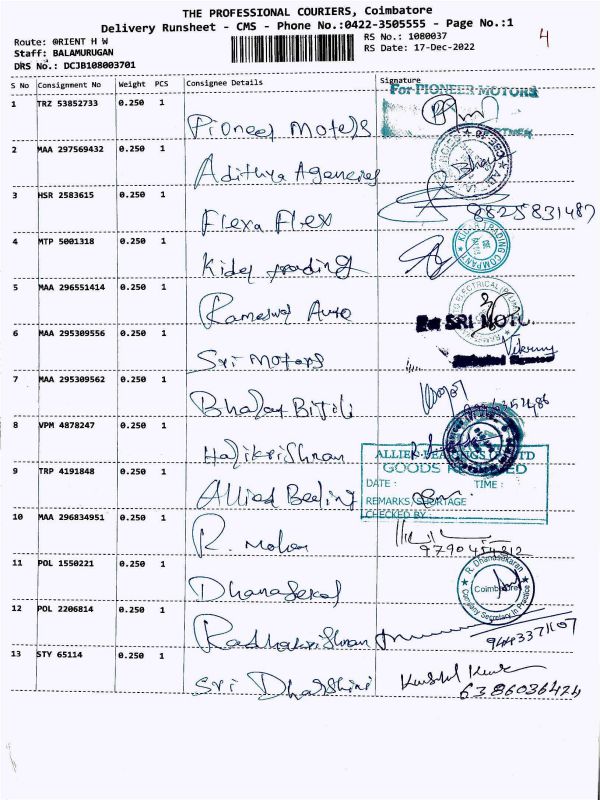 THE PROFESSIONAL COURIERS, Coimbatore
Delivery Runsheet - CMS - Phone No.:0422-3505555 - Page No.:1
4
Route: @RIENT H W
RS No.: 1080037
Staff: BALAMURUGAN
RS Date: 17-Dec-2022
DRS No.: DCJB108003701
S No Consignment No Weight PCS Consignee Details Signature
1 TRZ 53852733 0.250 1 Pioneer Motors
For PIONEER MOTORS
2 MAA 297569432 0.250 1 Adithya Agencies
3 HSR 2583615 0.250 1 Flexa Flex
8825831487
4 MTP 5001318 0.250 1 Kider Trading
5 MAA 296551414 0.250 1 Rameswar Auto
6 MAA 295309556 0.250 1 Sri Motors
For SRI MOTO
7 MAA 295309562 0.250 1 Bharat Bijili
8 VPM 4878247 0.250 1 Harikrishnan
9 TRP 4191848 0.250 1 Allied Bearing
GOODS RECEIVED
DATE : TIME :
REMARKS, SHORTAGE
CHECKED BY :
10 MAA 296834951 0.250 1 R. Mohan
11 POL 1550221 0.250 1 Dhanasekar
R. Dhanasekaran
Coimbatore
Company Secretary In Practice
12 POL 2206814 0.250 1 Radhakrishnan
13 STY 65114 0.250 1 Sri Dharshini
6386036424